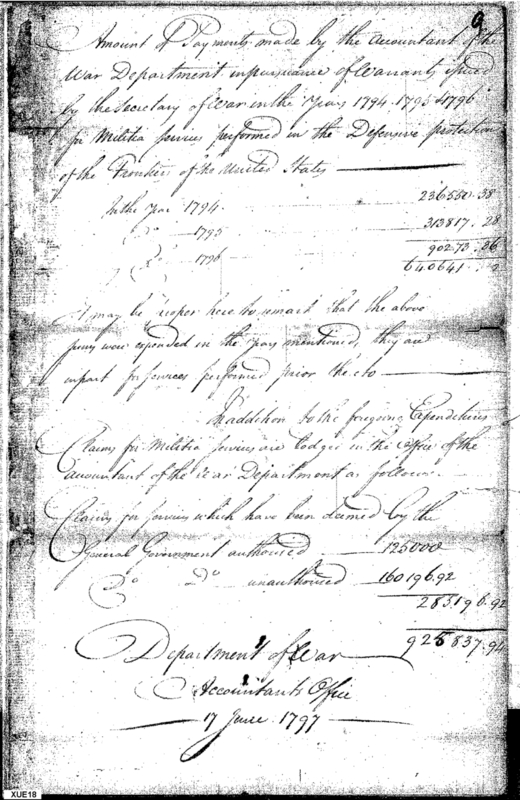 9
Amount of Payments made by the Accountant of the
War Department in pursuance of Warrants issued
by the Secretary of War in the Years 1794. 1795 & 1796
for Militia Services performed in the Defensive protection
of the Frontiers of the United States
In the Year 1794. 236550.38
Do 1795 313817.28
Do 1796 90273.36
640641. 2
It may be proper here to remark that the above
sums were expended in the years mentioned, they are
in part for services performed prior thereto
In addition to the foregoing Expenditures
Claims for Militia services are lodged in the Office of the
Accountant of the War Department as follows
Claims for services which have been deemed by the
General Government authorised 125000
Do Do unauthorised 160196.92
285196.92
925837.94
Department of War
Accountants Office
17 June 1797
XUE18